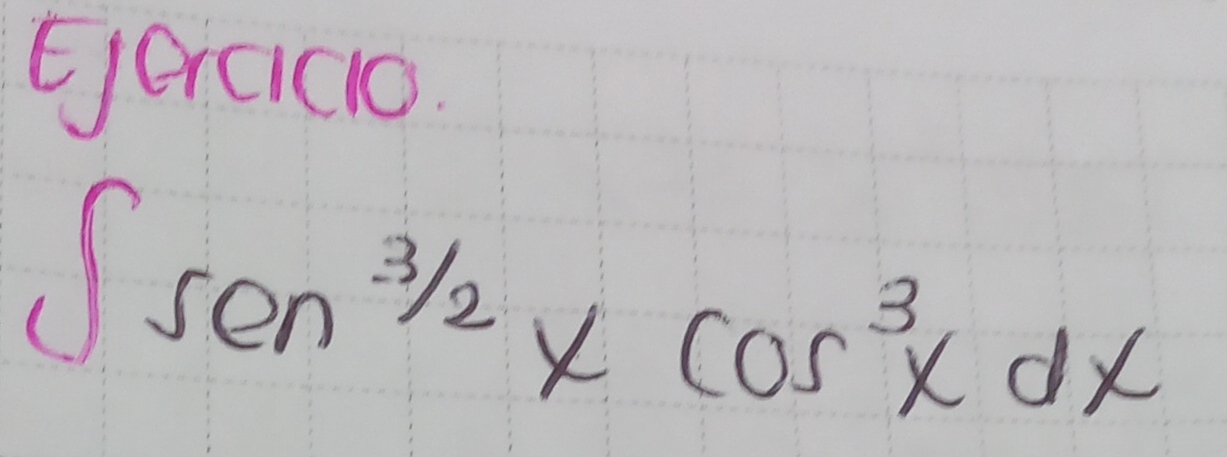 Ejercicio.
∫ sen^3/2 x cos^3 x dx